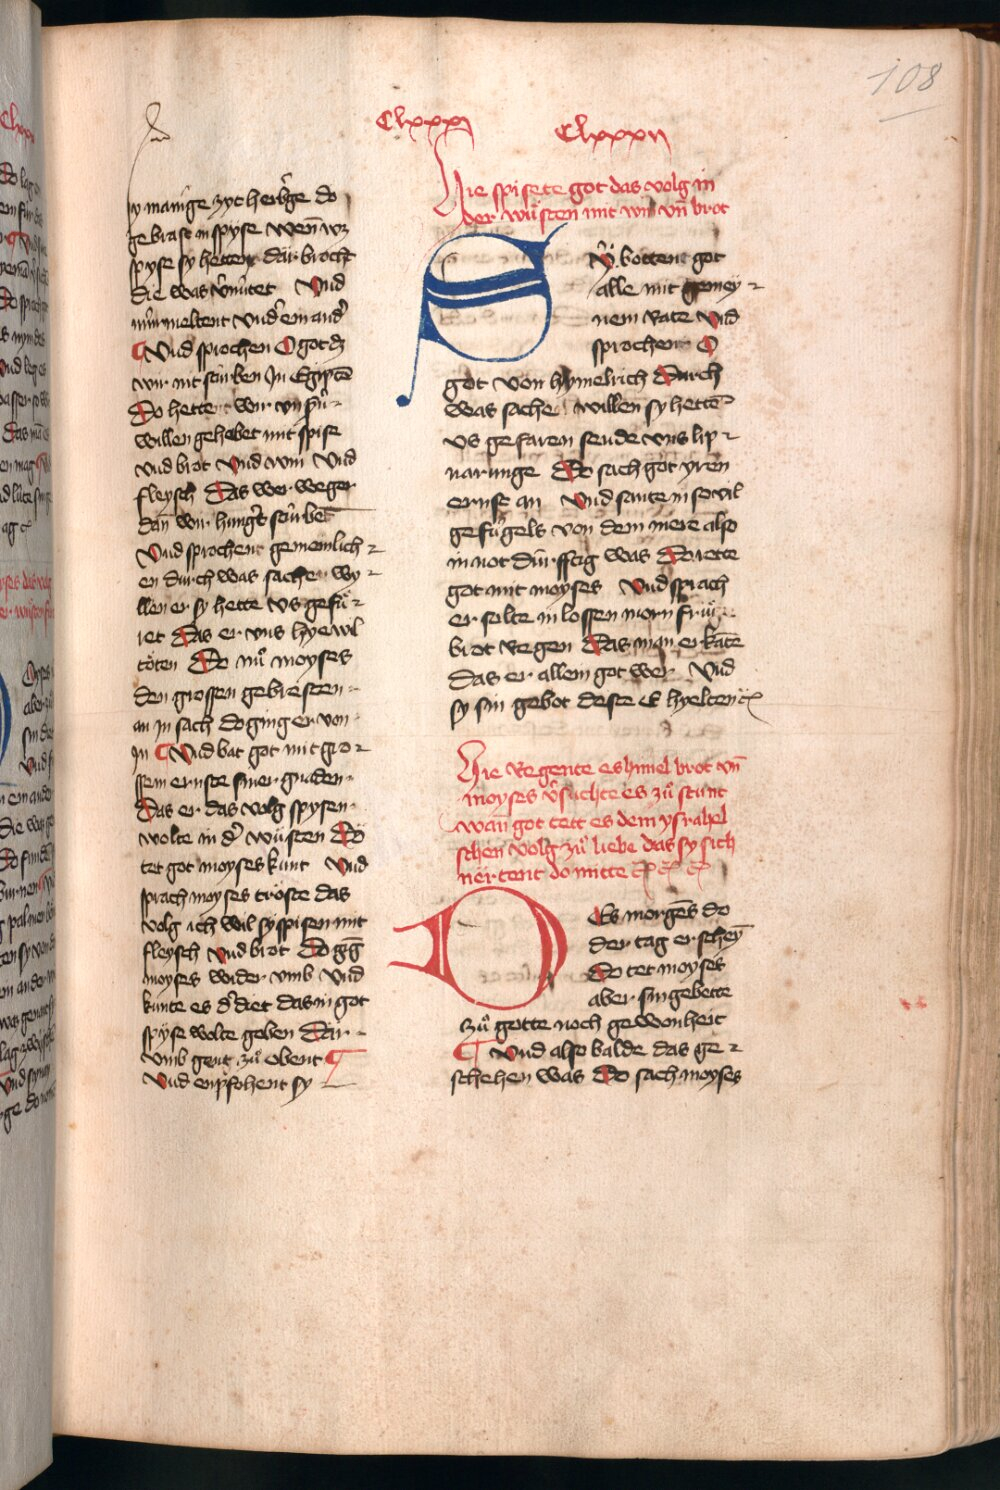 108
Clxxxj
Clxxxij
sy mainge zyt herbg̾e do
gebrast in spyse wen̄ wz
spyse sy hettent dar brocht
die was v̾nutzet Vnd
murmeltent vnd̾ ein and̾
¶ Vnd sprochen O got dz
wir nit sturben In Egiptē
Do hettent wir vnsrn̄
willen gehebet mit spise
vnd brot Vnd win Vnd
fleysch Das wer weger
dan̄ wir hungers sturbēt
Vnd sprochent gemeinlich
en durch was sachen wy
llen er sy hette vs gefuͤ
ret Das er vns hye wl
toͤten Do nuͦ moyses
den grossen gebresten
an in sach do ging er von
In ¶ Vnd bat got mit gro
ssem ernste siner gnaden
Das er das volg spysen
wolte in d̾ wuͤsten Do
tet got moyses kunt Vnd
sprach moyses troͤste das
volg ich wil sy spisen mit
fleysch vnd brot Do gīg
moyses wider vmb Vnd
kunte es d̾ diet das in got
spyse wolte geben Dar
vmb gent zuͦ obent ¶
Vnd enpfohent sy
Hie spisete got das volg in
der wuͤsten mit win vn̄ brot
Sy botten got
alle mit gemey
nem rate Vnd
sprochen O
got von hymelrich Durch
was sache willen sy hettē
vs gefaren sende vns lip
narunge Do sach got yren
ernst an Vnd sante in so vil
gefuͤgels von dem mere also
in not durfftig was Do rette
got mit moyses Vnd sprach
er solte in lossen morn fruͤ
brot regen Das man erkāte
das er allein got wer Vnd
sy sin gebot deste E hyelten ⁊c
Hie regente es himel brot vn̄
moyses v̾suchte es zuͦ stunt
wan̄ got tett es dem ysrahel
schen volg zuͦ liebe das sy sich
nertent do mitte ⁊c ⁊c ⁊c
Des morgēs do
der tag erscheỹ
Do tet moyses
aber sin gebette
zuͦ gotte noch gewonheit
¶ Vnd also balde das ge
schehen was Do sach moyses